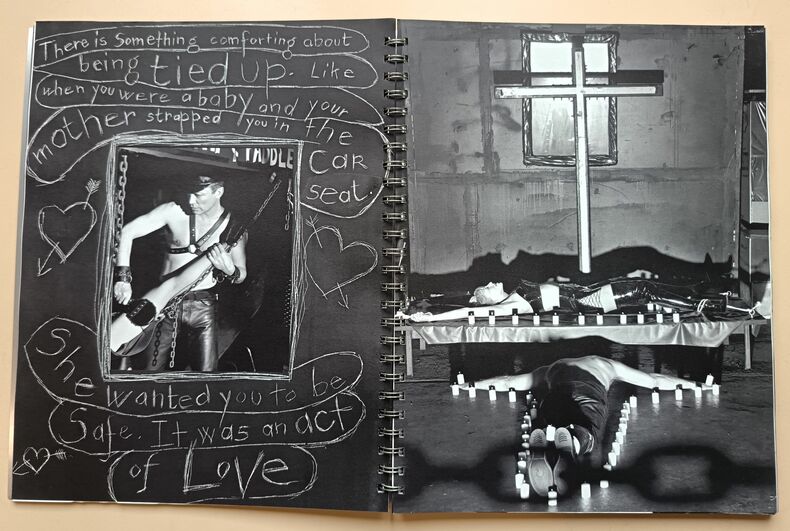 There is Something comforting about
being tied up. Like
when you were a baby and your
mother strapped you in the
CAR
seat
SADDLE
She wanted you to be
Safe. It was an act
of Love